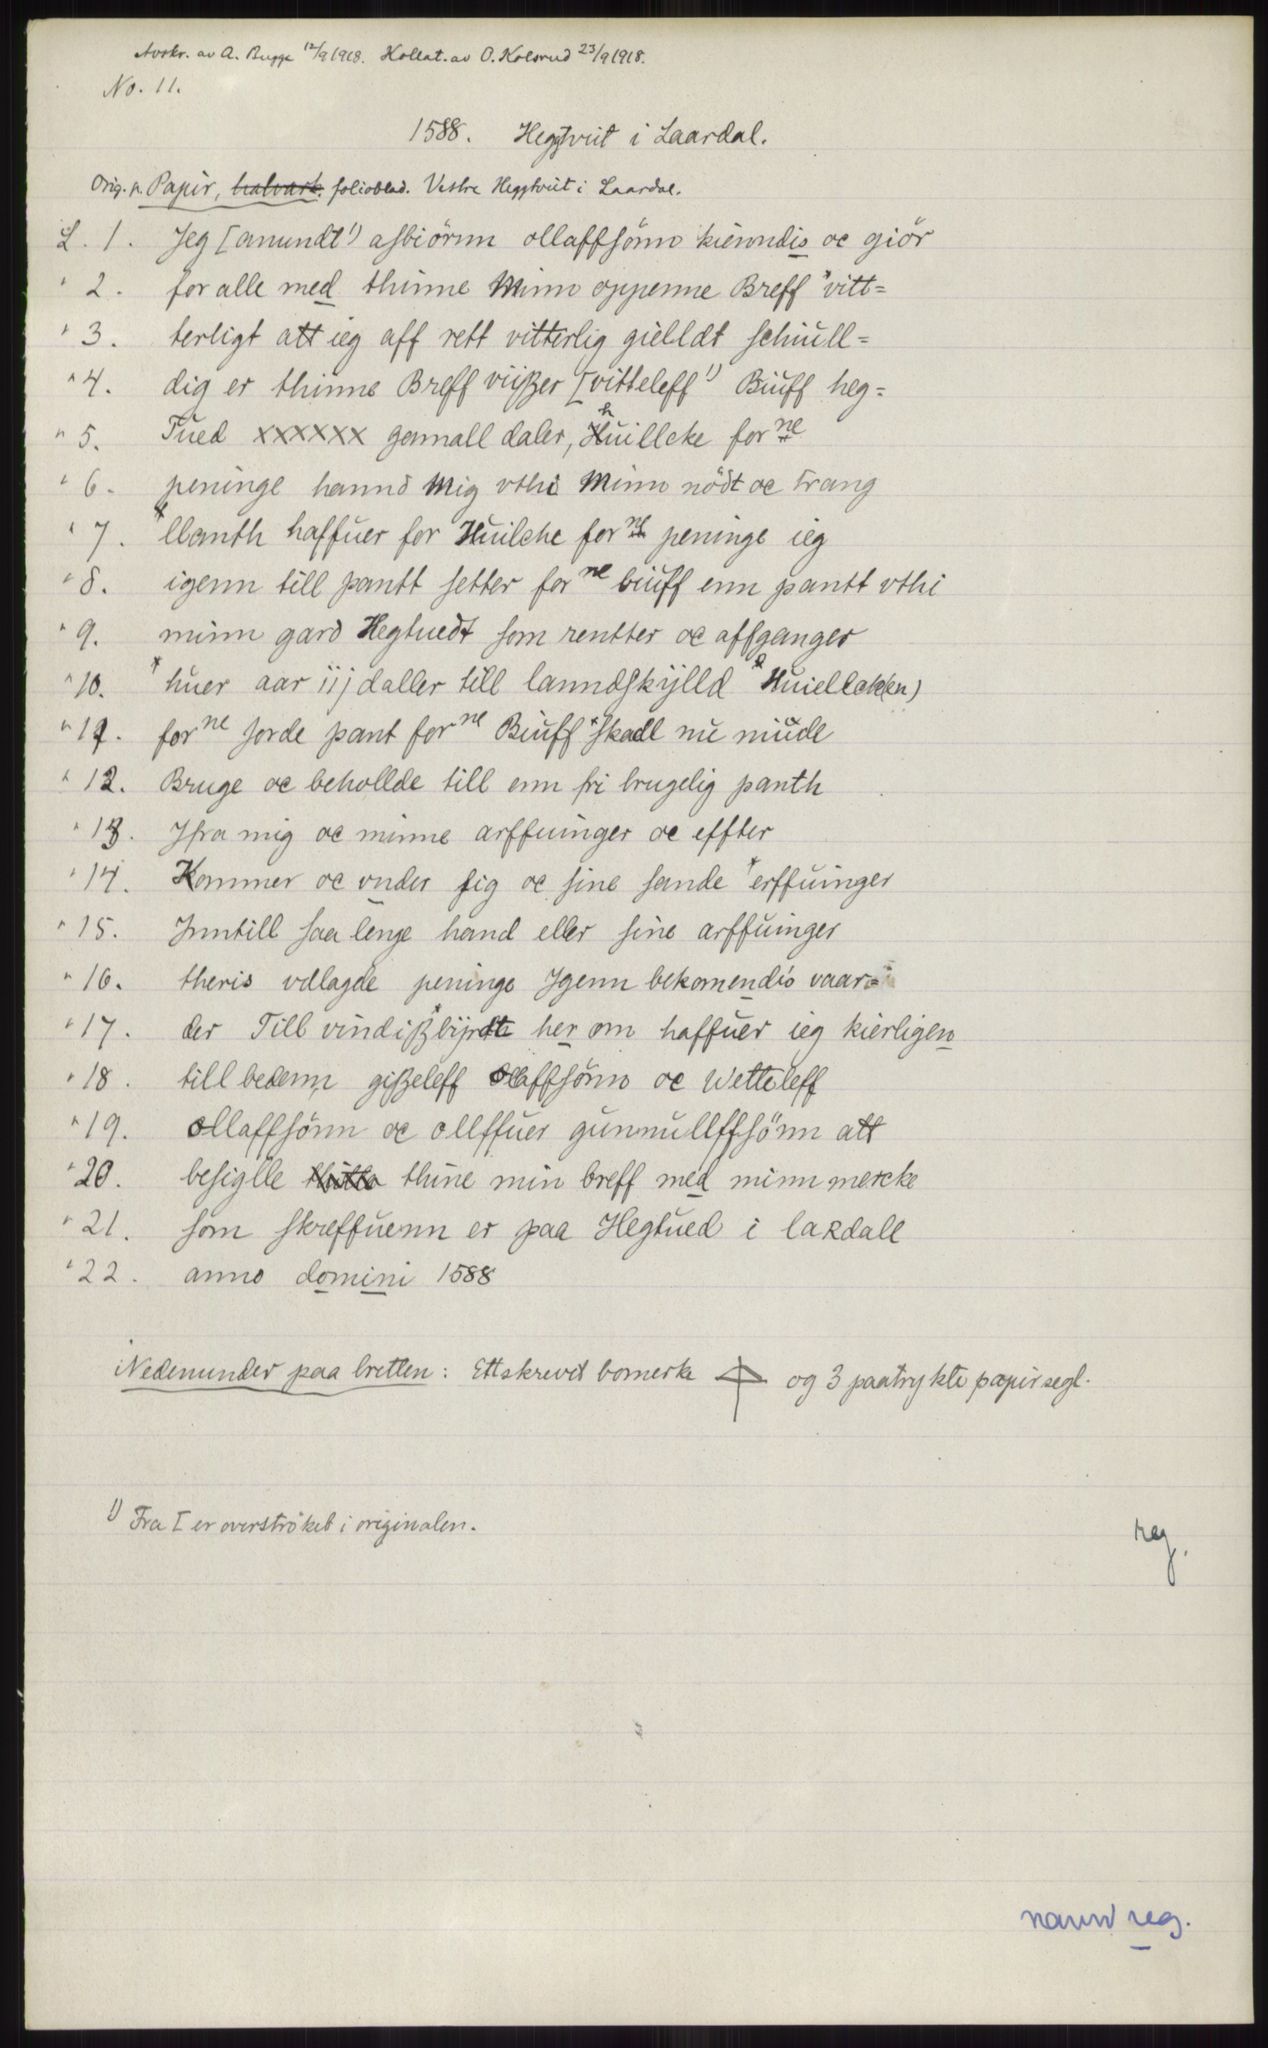 Avskr. av A. Bugge 12/9 1918. Kollat. av O. Kolsrud 23/9 1918.
No. 11.
1588. Heggtveit i Laardal.
Orig. p. Papir, halvark. folioblad. Vestre Heggtveit i Laardal.
L. 1. Jeg [amundt 1) asbiörnn ollaffsönn kienndis oc giör
" 2. for alle med thinne Minn oppenne Breff *vitt=
" 3. terligt att ieg aff rett vitterlig gielldt schiull=
" 4. dig er thinne Breff viißer [vitteleff 1) Biuff heg=
" 5. Tued xxxxxx gamall daler, huillcke for ne
" 6. peninge hannd Mig vthi Minn nödt oc trang
" 7. *llanth haffuer for Huilche for ne peninge ieg
" 8. igenn till pantt setter for ne biuff enn pantt vthi
" 9. minn gard Hegtuedt som rentter oc affganger
" 10. *huer aar iij daller till lanndskylld *Huiellck(en)
" 11. for ne jorde pant for ne Biuff *skall nu niude
" 12. Bruge oc behollde till enn fri brugelig panth
" 13. Ifra mig oc minne arffuinger oc effter
" 14. Kommer oc vnder sig oc sine sande *erffuinger
" 15. Inntill saa lenge hand eller sine arffuinger
" 16. theris vdlagde peninge Igenn bekomendis vaar=
" 17. der Till vindiß*byrdt her om haffuer ieg kierligen
" 18. till bedenn gißeleff ollaffsönn oc Wetteleff
" 19. ollaffsönn oc ollffuer gunnullffsönn att
" 20. besiglle thitte thine min breff med minn mercke
" 21. som skreffuenn er paa Hegtued i laRdall
" 22. anno domini 1588
Nedenunder paa bretten: Ett skrevet bomerke og 3 paatrykte papirsegl.
1) Fra [ er overströket i originalen.
reg.
navnreg.